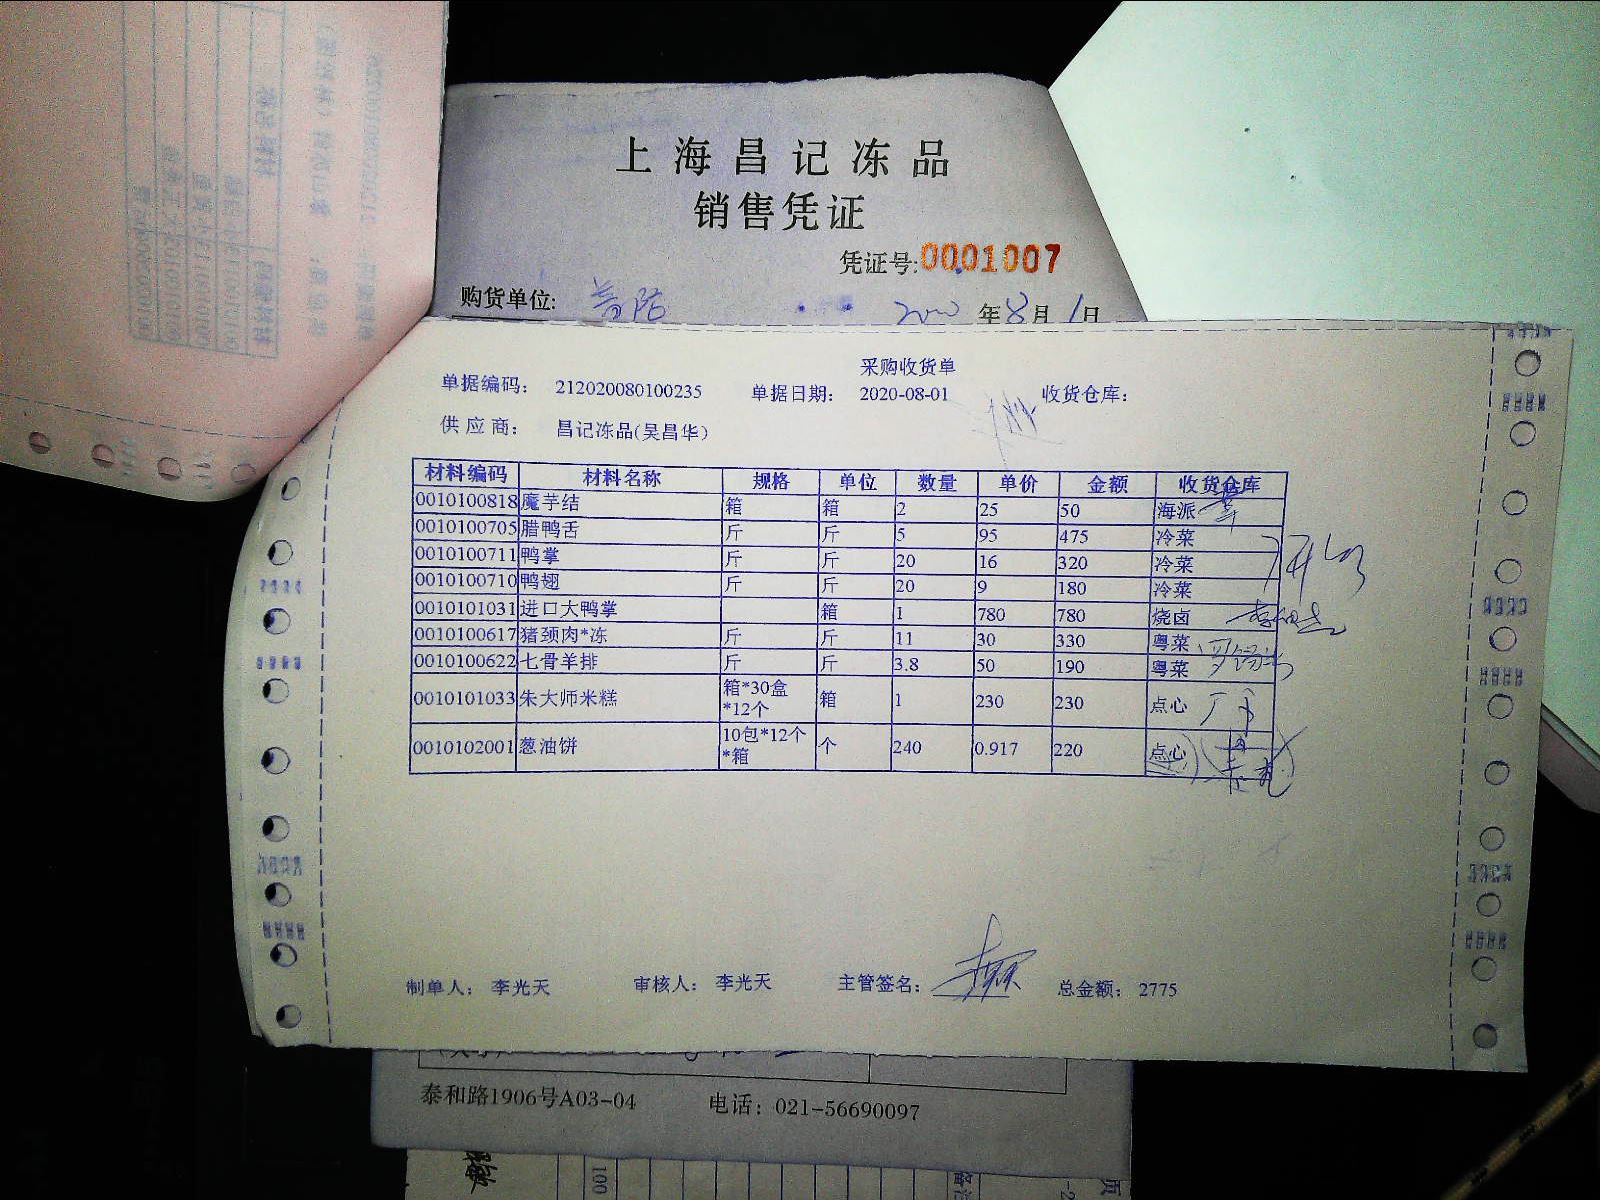 上海昌记冻品
销售凭证
凭证号:0001007
购货单位: 年8月1日
采购收货单
单据编码: 212020080100235 单据日期: 2020-08-01 收货仓库:
供应商: 昌记冻品(吴昌华)
材料编码 材料名称 规格 单位 数量 单价 金额 收货仓库
0010100818 魔芋结 箱 箱 2 25 50 海派
0010100705 腊鸭舌 斤 斤 5 95 475 冷菜
0010100711 鸭掌 斤 斤 20 16 320 冷菜
0010100710 鸭翅 斤 斤 20 9 180 冷菜
0010101031 进口大鸭掌 箱 1 780 780 烧卤
0010100617 猪颈肉*冻 斤 斤 11 30 330 粤菜
0010100622 七骨羊排 斤 斤 3.8 50 190 粤菜
0010101033 朱大师米糕 箱*30盒
*12个 箱 1 230 230 点心
0010102001 葱油饼 10包*12个
*箱 个 240 0.917 220 点心
制单人: 李光天 审核人: 李光天 主管签名: 总金额: 2775
泰和路1906号A03-04 电话: 021-56690097
100